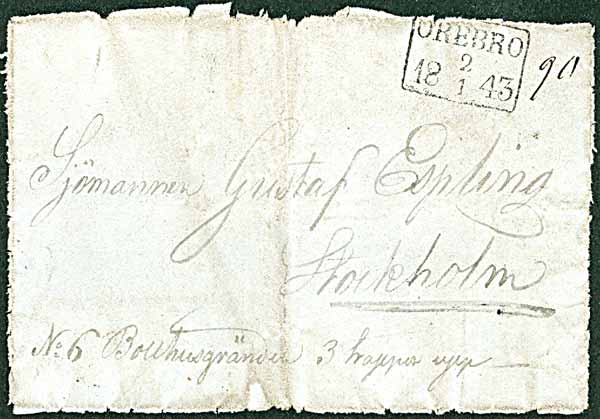 ÖREBRO
2
18 1 43
90
Sjömannen Gustaf Espling
Stockholm
No: 6 Bollhusgränden 3 trappor upp